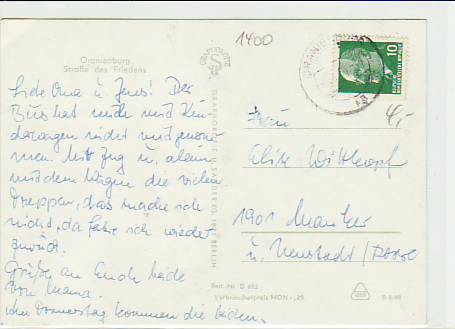 Oranienburg
Straße des Friedens
1400
Liebe Oma u. Jens! Der
Bus hat mich mit Kin-
derwagen nicht mitgenom-
men. Mit Zug u. allein
mit dem Wagen die vielen
Treppen, das mache ich
nicht, da fahre ich wieder
zurück.
Grüße an Euch beide
von Mama.
Am Donnerstag kommen die beiden.
ORANIENBURG
10
Frau
1901
u. Neustadt / Dosse
Best. Nr. D 652
Verbraucherpreis MDN -,25